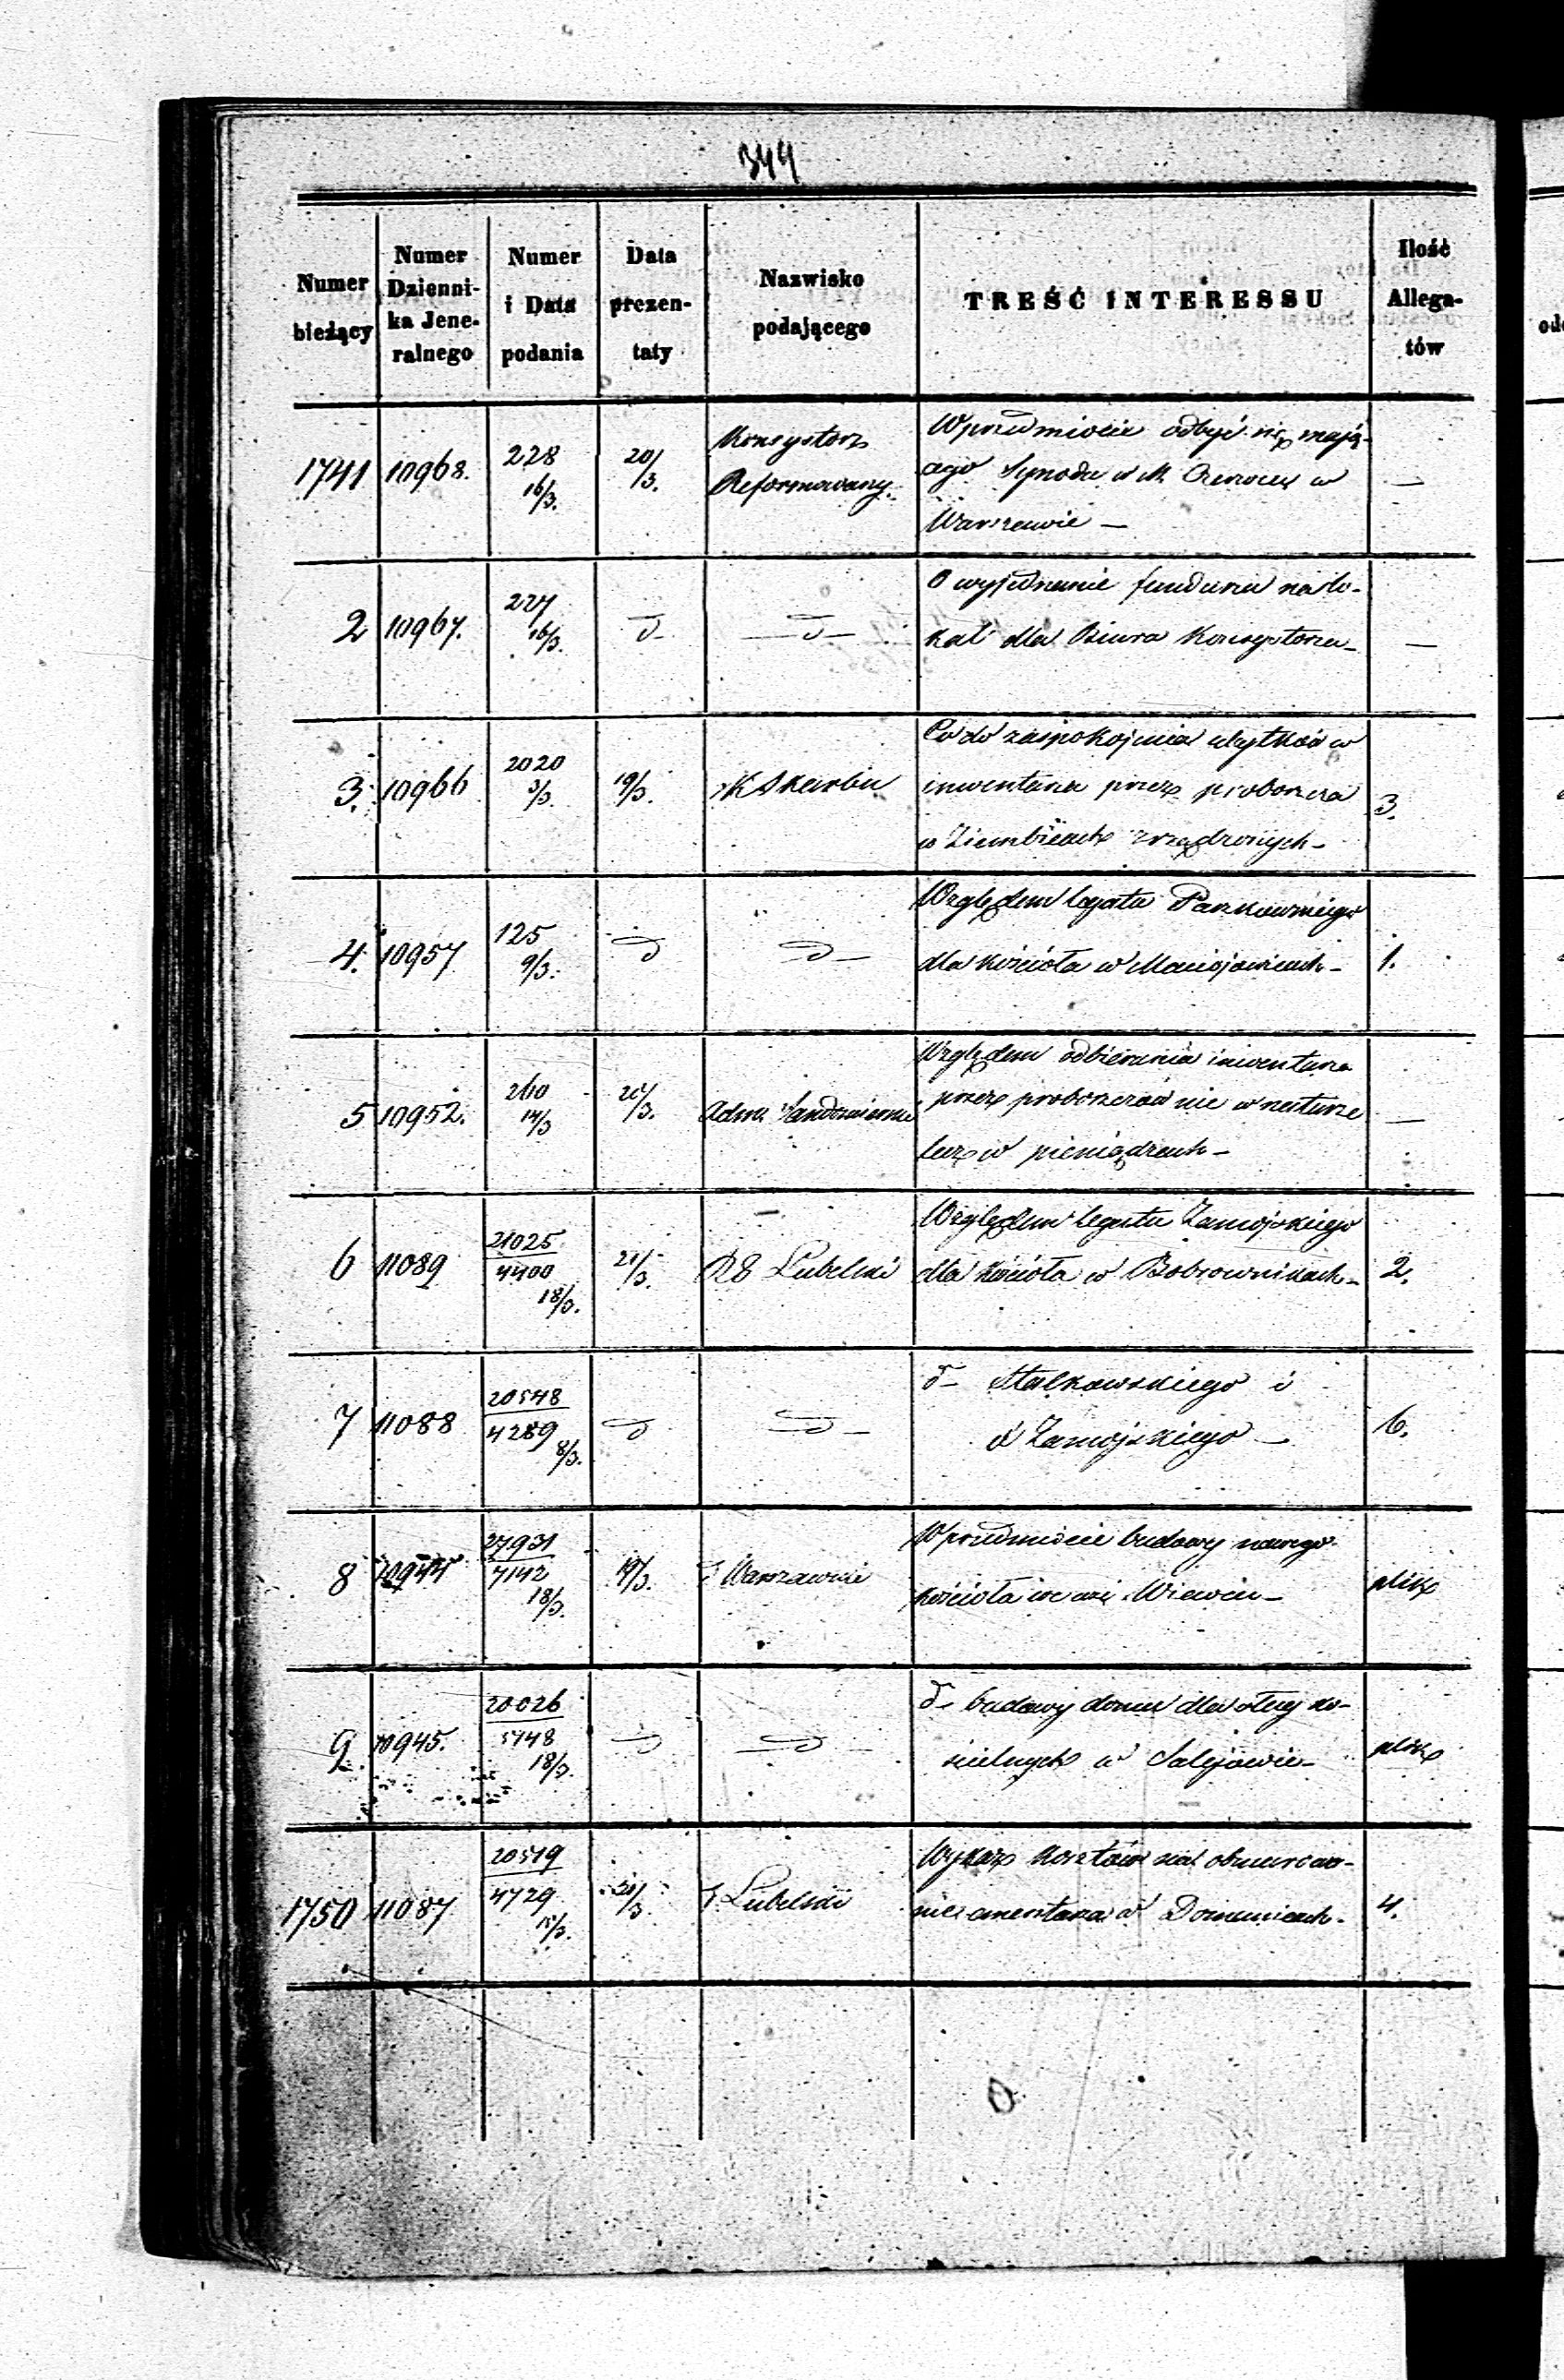 344
Numer bieżący | Numer Dziennika Jeneralnego | Numer i Data podania | Data prezentaty | Nazwisko podającego | TREŚĆ INTERESSU | Ilość Allegatów
1741 10968. 228 16/3. 20/3. Konsystorz Reformowany. W przedmiocie odbyć się mają-
cego Synodu w M. Czerwcu w —
Warszawie —
2 10967. 227 16/3. d- — d — O wyjednanie funduszu na lo-
kal dla Biura Konsystorza — —
3. 10966 2020 3/3. 19/3. K Skarbu Co do zaspokojenia ubytków w
inwentarzu przez proboszcza 3.
w zrządzonych —
4. 10957 125 9/3. d d — Względem legatu
dla kościoła w Maciejowicach — 1.
5 10952. 2610 14/3 20/3. Adm. Sandomierski Względem odbierania inwentarza
przez proboszczów nie w naturze —
lecz w pieniądzach —
6 11089 21025 4400 18/3. 21/3. RG Lubelski Względem legatu Zamojskiego
dla kościoła w Bobrownikach — 2.
7 11088 20548 4289 8/3. d d — d- i
d Zamojskiego — 6.
8 10944 27931 7142 18/3. 19/3. Warszawski W przedmiocie budowy nowego
kościoła we wsi Wiewcu — plik
9. 10945. 20026 5748 18/3. d d — d- budowy domu dla sług ko-
ścielnych w Sulejowie — plik
1750 11087 20519 4729 15/3. 20/3. Lubelski Wykaz kosztów na obmurowa-
nie cmentarza w — 4.